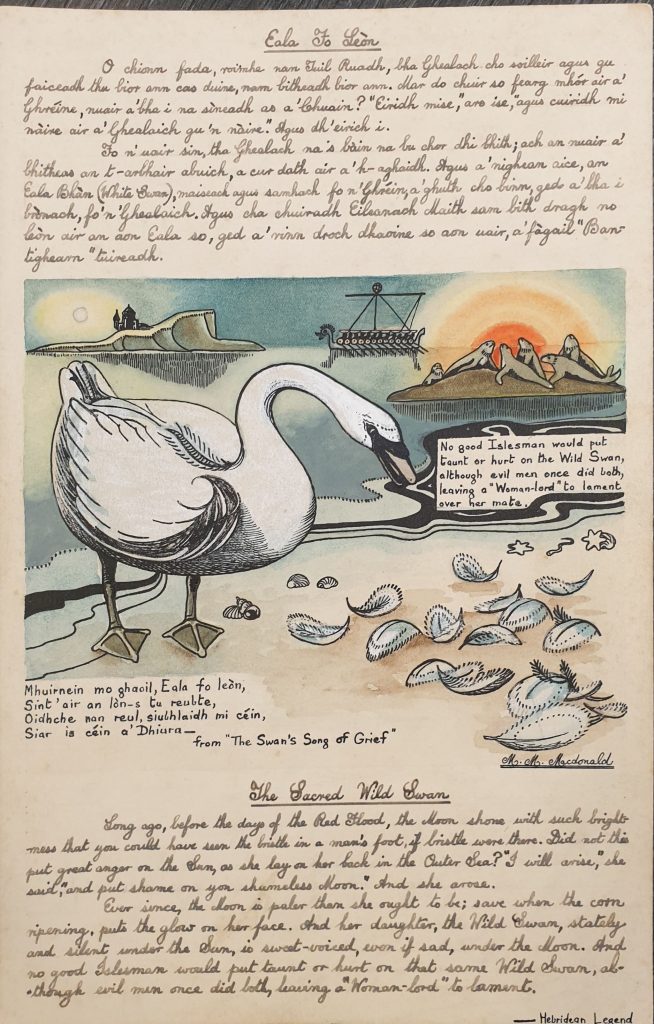 Eala Fo Leòn
O chionn fada, roimhe nan Tuil Ruadh, bha Ghealach cho soilleir agus gu
faiceadh thu bior ann cas duine, nam bitheadh bior ann. Mar do chuir so fearg mhór air a'
Ghréine, nuair a' bha i na sìneadh as a 'Chuain? "Eiridh mise," ars ise, "agus cuiridh mi
nàire air a' Ghealaich gu 'n nàire." Agus dh'eirich i.
Fo n' uair sin, tha Ghealach na's bàin na bu chor dhi bhith; ach an nuair a'
bhitheas an t-arbhair abuich, a cur dath air a'h-aghaidh. Agus a' nighean aice, an
Eala Bhàn (White Swan), maiseach agus samhach fo n'Ghréin, a ghuth cho binn, ged a' bha i
brònach, fo'n 'Ghealaich. Agus cha chuiradh Eileanach Maith sam bith dragh no
leòn air an aon Eala so, ged a' rinn droch dhaoine so aon uair, a' fàgail "Ban-
tighearn" tuireadh.
No good Islesman would put
taunt or hurt on the Wild Swan,
although evil men once did both,
leaving a "Woman-lord" to lament
over her mate.
Mhuirnein mo ghaoil, Eala fo leòn,
Sint' air an lòn-s tu reubte,
Oidhche nan reul, siubhlaidh mi céin,
Siar is céin a' Dhiura—
from "The Swan's Song of Grief"
M. M. Macdonald
The Sacred Wild Swan
Long ago, before the days of the Red Flood, the Moon shone with such bright-
ness that you could have seen the bristle in a man's foot, if bristle were there. Did not this
put great anger on the Sun, as she lay on her back in the Outer Sea? "I will arise," she
said, "and put shame on yon shameless Moon." And she arose.
Ever since, the Moon is paler than she ought to be; save when the corn
ripening, puts the glow on her face. And her daughter, the Wild Swan, stately
and silent under the Sun, is sweet-voiced, even if sad, under the Moon. And
no good Islesman would put taunt or hurt on that same Wild Swan, al-
-though evil men once did both, leaving a "Woman-lord" to lament.
— Hebridean Legend